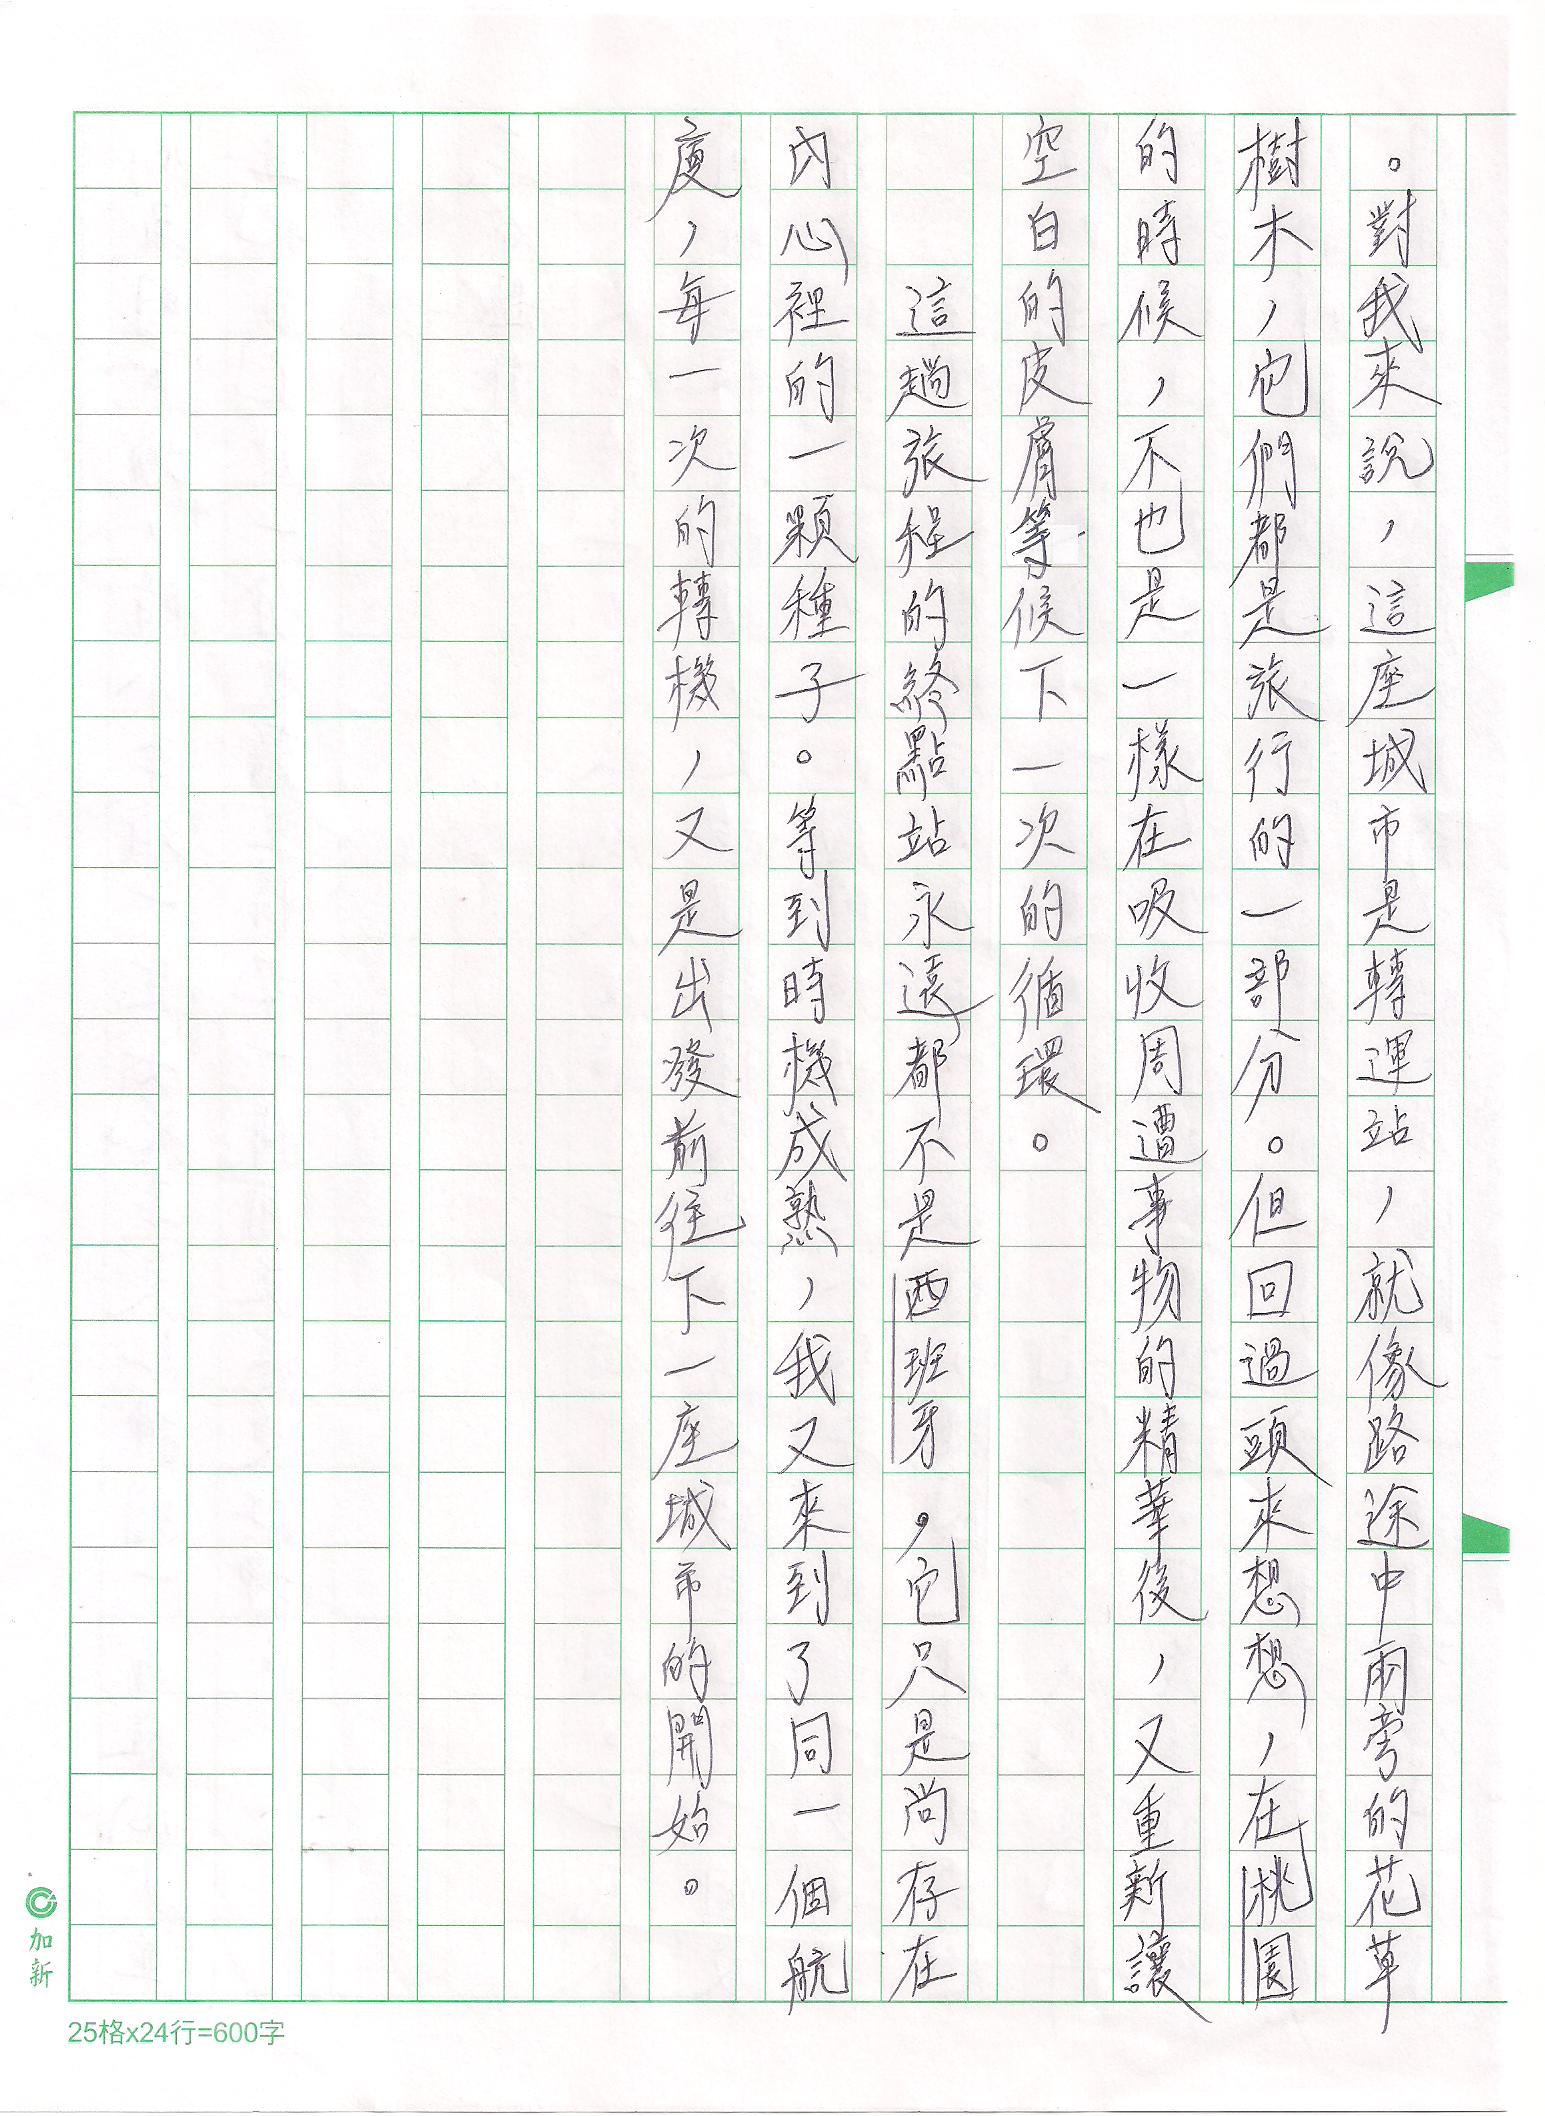 。對我來說，這座城市是轉運站，就像路途中兩旁的花草
樹木，它們都是旅行的一部分。但回過頭來想想，在桃園
的時候，不也是一樣在吸收周遭事物的精華後，又重新讓
空白的皮膚等候下一次的循環。
這趟旅程的終點站永遠都不是西班牙，它只是尚存在
內心裡的一顆種子。等到時機成熟，我又來到了同一個航
廈，每一次的轉機，又是出發前往下一座城市的開始。
加新
25格x24行=600字